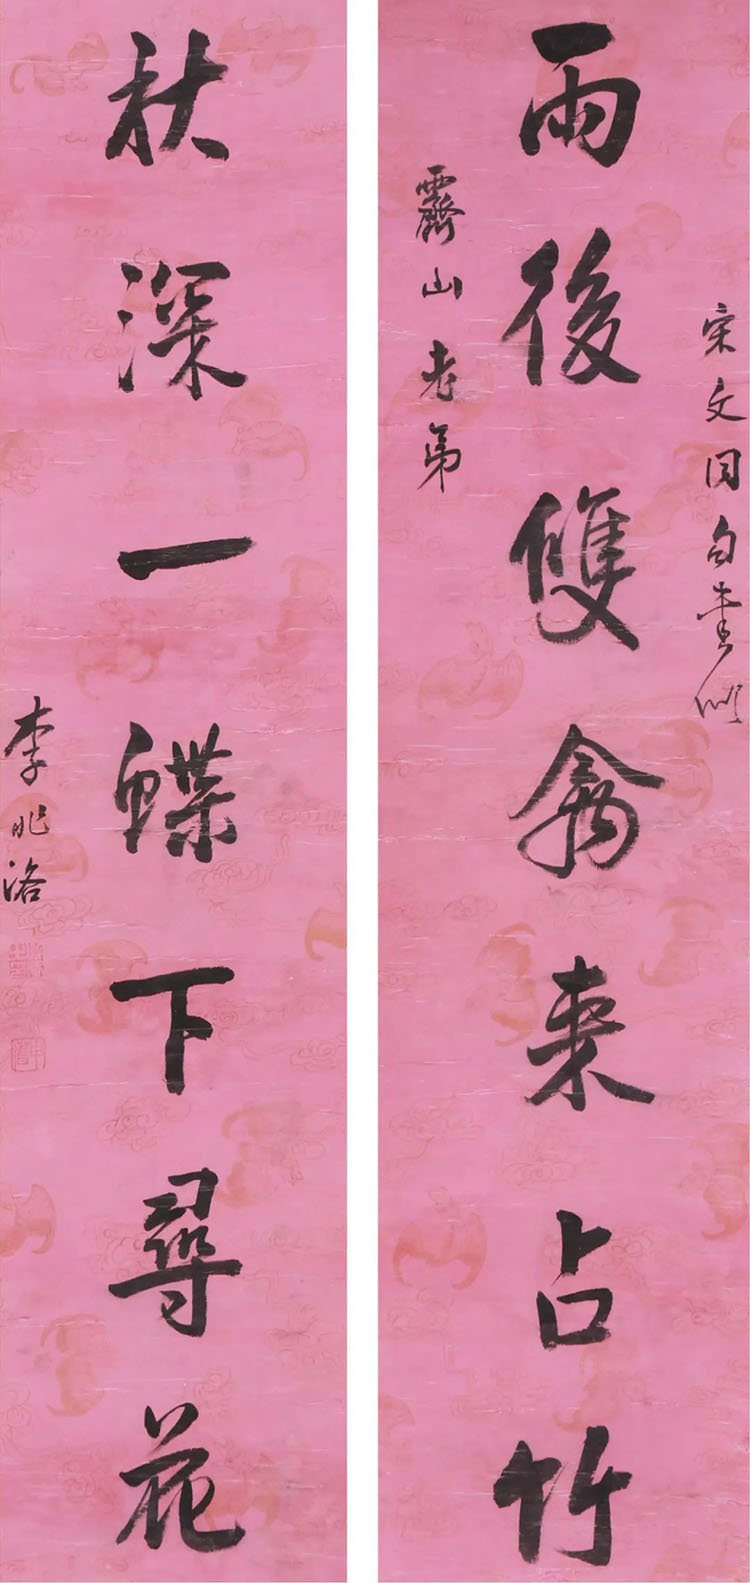 宋文同句書似
雨後雙禽来占竹
霽山老弟
秋深一蝶下尋花
李兆洛